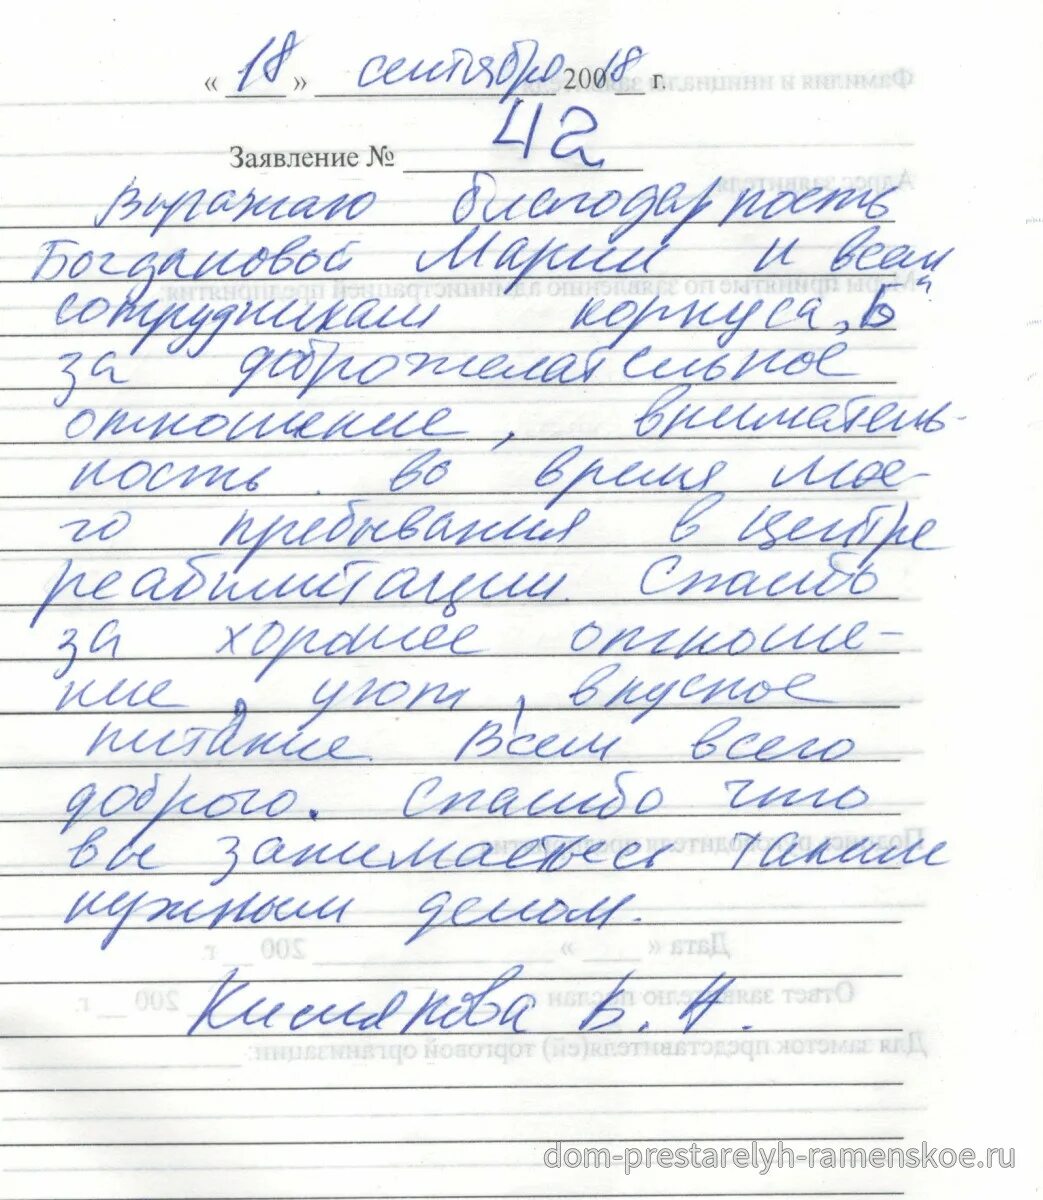 « 18 » сентября 20018 г.
Заявление № 42
Выражаю благодарность
Богдановой Марии и всем
сотрудникам корпуса „Б"
за доброжелательное
отношение, вниматель-
ность во время мое-
го пребывания в Центре
реабилитации. Спасибо
за хорошее отноше-
ние, уют, вкусное
питание. Всем всего
доброго. Спасибо что
вы занимаетесь таким
нужным делом.
В. Н.
dom-prestarelyh-ramenskoe.ru